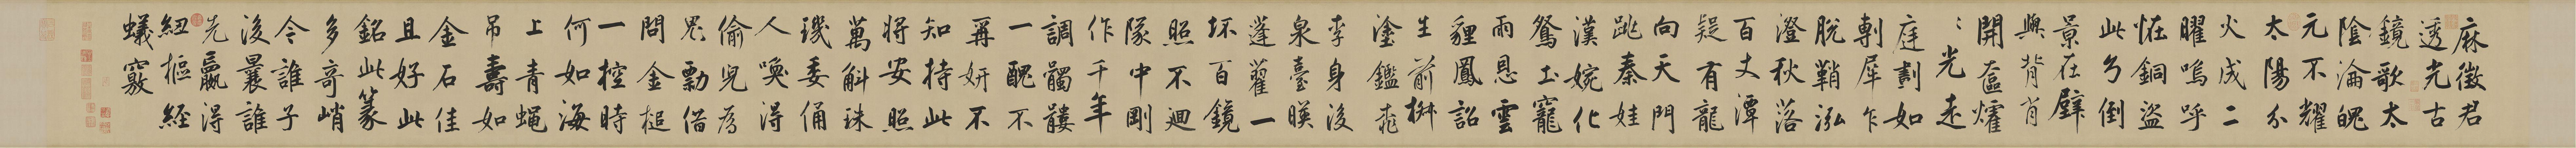 麻徵君
透光古
鏡歌太
陰淪魄
元不耀
太陽分
火成二
曜嗚呼
怪銅盜
此乃倒
景在壁
與背肖
開奩爟
〻光走
庭劃如
剸犀乍
脫鞘泓
澄秋落
百丈潭
疑有龍
向天門
跳秦娃
漢婉化
鴛土寵
雨恩雲
貍鳳詔
生前椒
塗鑑桃
李身後
泉臺暎
蓬藋一
坏百鏡
照不迴
隊中剛
作千年
調髑髏
一醜不
再妍不
知持此
将安照
萬斛珠
璣委俑
人喚得
偷兒為
鬼勦借
問金槌
一控時
何如海
上青蝿
吊壽如
金石佳
且好此
銘此篆
多奇峭
今誰子
後曩誰
先贏得
紐樞經
蟻竅